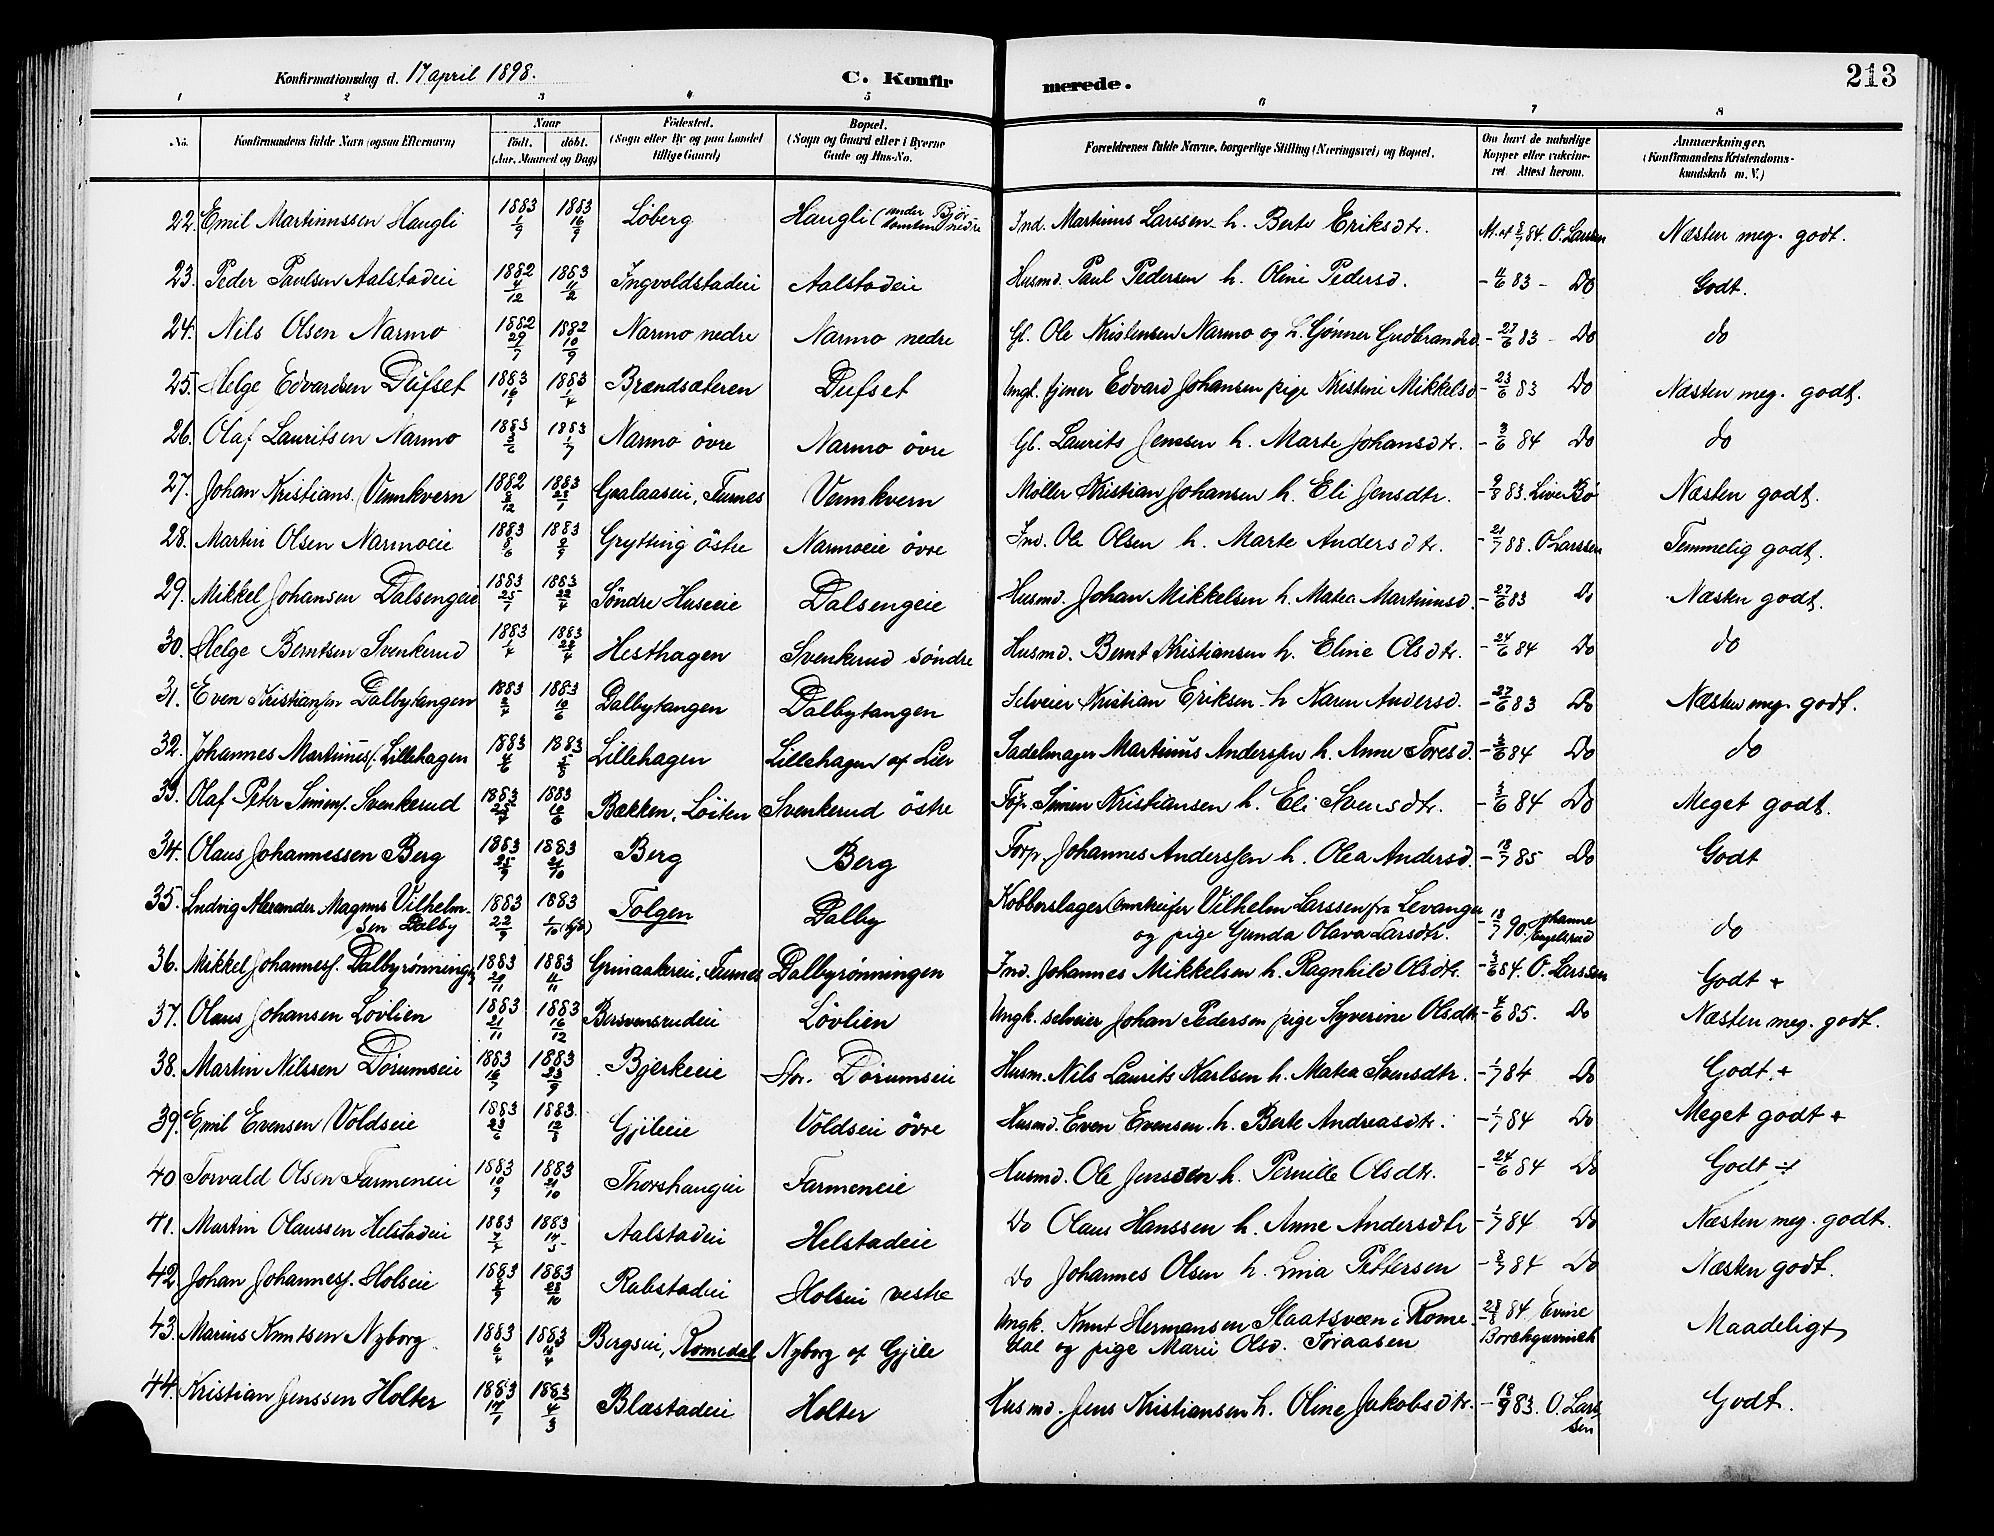 Konfirmationsdag d. 17 april 1898.
C. Konfir
merede.
213
1 2 3 4 5 6 7 8
No.
Konfirmandens fulde Navn (ogsaa Efternavn)
Naar
födt. döbt.
(Aar, Maaned og Dag)
Födested.
(Sogn eller By og paa Landet
tillige Gaard)
Bopæl.
(Sogn og Gaard eller i Byerne
Gade og Hus-No.
Forældrenes fulde Navne, borgerlige Stilling (Næringsvei) og Bopæl.
Om havt de naturlige
Kopper eller vakcine-
ret Attest herom.
Anmærkninger.
(Konfirmandens Kristendoms-
kundskab m. V.)
22. Emil Martinussen Haugli 1883 1/9 1883 16/9 Löberg Haugli (under Bjørtomten nedre Ind. Martinus Larssen h. Berte Eriksdtr. At. af 8/7 84. O. Larssen Næsten meg. godt.
23. Peder Paulsen Aalstadeie 1882 4/12 1883 11/2 Ingvoldstadeie Aalstadeie Husmd. Paul Pedersen h. Oline Pedersd. - 11/6 83 - Do Godt.
24. Nils Olsen Narmo 1882 29/7 1882 10/9 Narmo nedre Narmo nedre Gl. Ole Kristensen Narmo og h. Gönner Gudbrandsd. - 27/6 83 - Do do
25. Helge Edvardsen Dufset 1883 16/1 1883 1/4 Brændsæteren Dufset Ungk. tjener Edvard Johansen pige Kristine Mikkelsd - 23/6 83 Do Næsten meg. godt.
26. Olaf Lauritsen Narmo 1883 3/6 1883 1/7 Narmo övre Narmo övre Gb. Laurits Jenssen h. Marte Johansdtr. - 3/6 84 Do do
27. Johan Kristians. Vennkvern 1882 8/12 1883 28/1 Gaalaaseie, Furnes Vennkvern Möller Kristian Johansen h. Eli Jensdtr. - 9/8 83. Liver Bö Næsten godt.
28. Martin Olsen Narmoeie 1883 8/6 1883 2/9 Grytting östre Narmoeie övre Ind. Ole Olsen h. Marte Andersdtr. - 21/7 88. O Larssen Temmelig godt.
29. Mikkel Johansen Dalsengeie 1883 25/1 1883 22/4 Söndre Huseeie Dalsengeie Husmd. Johan Mikkelsen h. Matea Martinusd. - 27/6 83 Do Næsten godt.
30. Helge Berntsen Svenkerud 1883 1/4 1883 22/4 Hesthagen Svenkerud söndre Husmd. Bernt Kristiansen h. Eline Olsdtr. - 24/6 84 Do do
31. Even Kristiansen Dalbytangen 1883 2/4 1883 10/6 Dalbytangen Dalbytangen Selveier Kristian Eriksen h Karen Andersd. - 27/6 83 Do Næsten meg. godt.
32. Johannes Martinus. Lillehagen 1883 4/6 1883 5/8 Lillehagen Lillehagen af Lier Sadelmager Martinus Anderssen h. Anne Toresd. - 3/6 84 Do do
33. Olaf Peter Simens. Svenkerud 1883 25/4 1883 10/6 Bækken, Löiten Svenkerud östre Forp. Simen Kristiansen h. Eli Svensdtr. - 3/6 84 Do Meget godt.
34. Olaus Johannessen Berg 1883 25/9 1883 21/10 Berg Berg Forp. Johannes Anderssen h. Olea Andersd. - 18/7 85 Do Godt
35. Ludvig Alexander Magnus Vilhelm- 1883 22/9 1883 1/10 (hjd) Tolgen Dalby Kobberslager Vilhelm Larssen fra Levanger - 18/7 90. Johanne Engelsrud do
sen Dalby og pige Gunda Olava Larsdtr.
36. Mikkel Johannes. Dalbyrönningen 1883 1883 Grinaakereie, Furnes Dalbyrönningen Ind. Johannes Mikkelsen h. Ragnhild Olsdtr. - 3/6 84. O. Larssen Godt +
37. Olaus Johansen Lövlien 1883 21/11 1883 16/12 Basvensrudeie Lövlien Ungk. selveier Johan Pedersen pige Syverine Olsdtr. - 4/6 85. Do Næsten meg. godt.
38. Martin Nilssen Dörumseie 1883 16/7 1883 23/9 Bjerkeeie Stor. Dörumseie Husm. Nils Laurits Karlsen h. Matea Svensdtr. - 1/7 84 Do Godt. +
39. Emil Evensen Voldseie 1883 23/6 1883. 12/8 Gjileeie Voldseie övre Husmd. Even Evensen h. Berte Andreasdtr. - 1/7 84 Do Meget godt +
40 Torvald Olsen Farmeneie 1883 10/9 1883 21/10 Thorshaugeie Farmeneie Husmd. Ole Jensen h. Pernille Olsdtr. - 24/6 84 Do Godt ÷
41. Martin Olaussen Helstadeie 1883 1883 14/5 Aalstadeie Helstadeie Do Olaus Hanssen h. Anne Andersdtr - 1/7 84 Do Næsten meg. godt.
42. Johan Johannes. Holseie 1883 2/9 1883 28/10 Rabstadeie Holseie vestre Do Johannes Olsen h. Lina Pettersen - 8/7 84 Do Næsten godt.
43. Marius Knutsen Nyborg 1883 6/4 1883 15/4 Bergseie, Romedal Nyborg af Gjile Ungk. Knut Hermansen Staatsveen i Rome- - 28/8 84. Evine Borchgrevinck Maadeligt
dal og pige Marie Olsd. Foraasen
44. Kristian Jenssen Holter 1883 17/1 1883 4/3 Blæstadeie Holter Husmd. Jens Kristiansen h. Oline Jakobsdtr. - 18/9 83. O. Lars- Godt.
sen